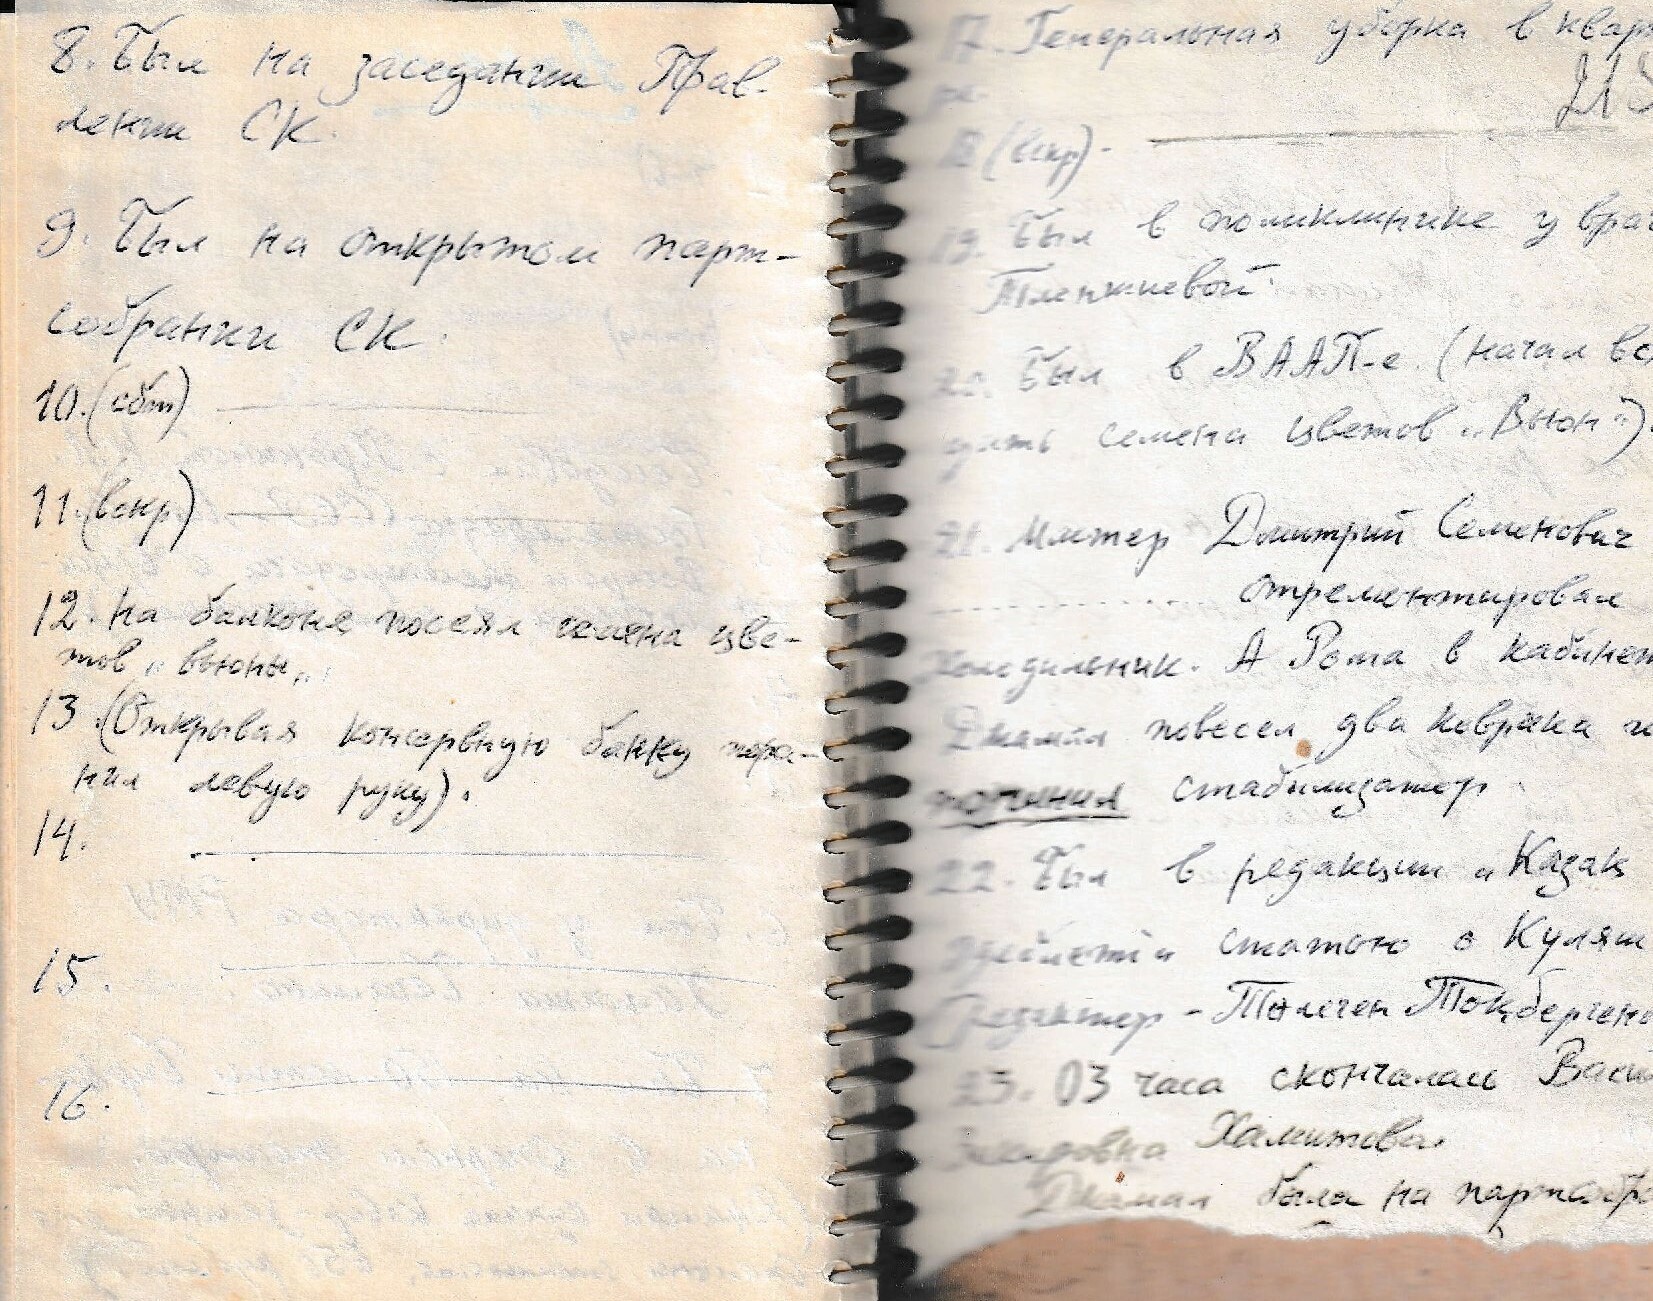 8. Был на заседании Прав-
лении СК.
9. Был на открытом парт-
собрании СК.
10. (сбт)
11. (вскр)
12. На балконе посеял семена цве-
тов „вьюны„
13. (Открывая консервную банку пора-
нил левую руку).
14.
15.
16.
17. Генеральная уборка в квар
ре.
18 (вскр) -
19. Был в поликлинике у врач
Тленшиевой.
20. Был в ВААП-е. (начал вс
дить семена цветов „Вьюн").
21. Мастер Дмитрий Семенович
отремонтировал
холодильник. А Рома в кабинет
Джамал повесел два коврика и
починил стабилизатор.
22. Был в редакции „Казак
эдебиеті" статью о Куляш
Редактор - Төлеген Тоқберген
23. 03 часа скончалась Васи
Закировна Хамитова.
Джамал была на партсобр